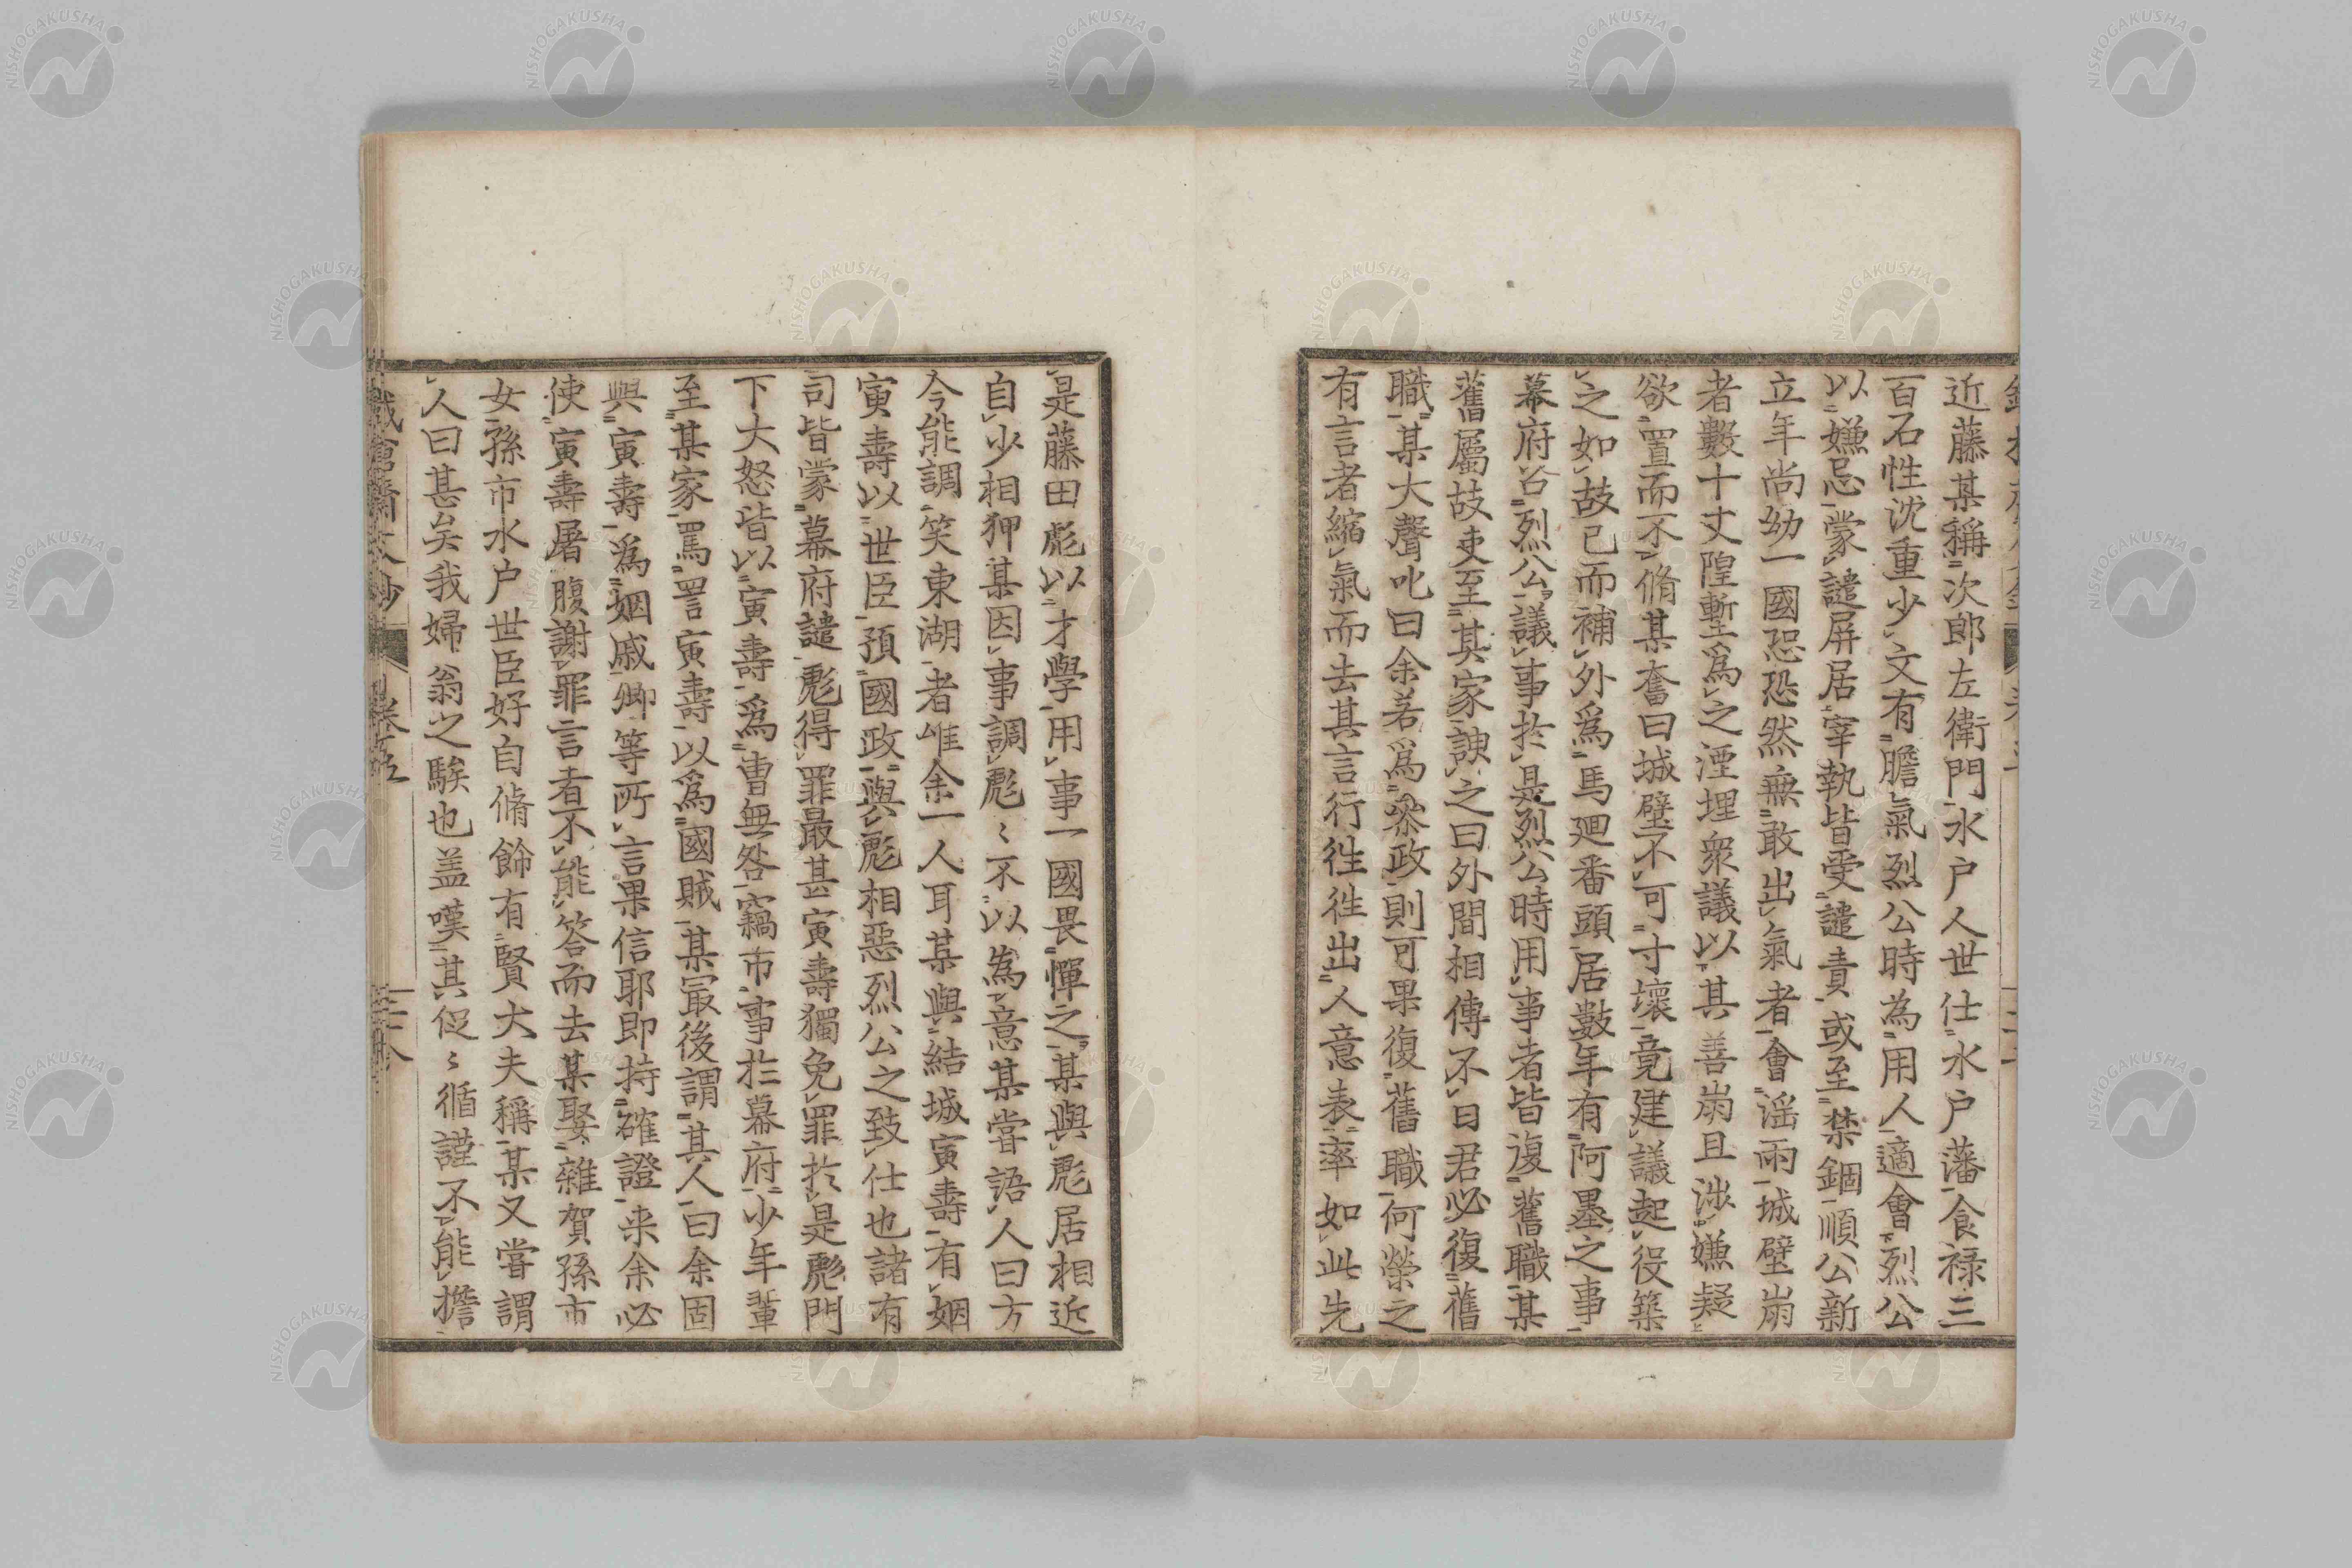 近藤某稱次郎左衛門水户人世仕水户藩食禄三
百石性沈重少文有膽氣烈公時為用人適會烈公
以嫌忌蒙譴屏居宰執皆受譴責或至禁錮順公新
立年尚幼一國恐恐然無敢出氣者會滛雨城壁崩
者數十丈隍塹爲之湮埋衆議以其善崩且涉嫌疑
欲置而不脩某奮曰城壁不可寸壞竟建議起役築
之如故已而補外爲馬廻番頭居數年有阿墨之事
幕府咨烈公議事於是烈公時用事者皆復舊職某
舊屬故吏至其家諛之曰外間相傳不日君必復舊
職某大聲叱曰余若爲叅政則可果復舊職何榮之
有言者縮氣而去其言行徃徃出人意表率如此先
是藤田彪以才學用事一國畏憚之某與彪居相近
自少相狎某因事調彪〻不以為意某嘗語人曰方
今能調笑東湖者唯余一人耳某與結城寅壽有姻
寅壽以世臣預國政與彪相惡烈公之致仕也諸有
司皆蒙幕府譴彪得罪最甚寅壽獨免罪於是彪門
下大怒皆以寅壽爲曹無咎竊市事於幕府少年輩
至某家罵詈寅壽以爲國賊某㝡後謂其人曰余固
與寅壽爲姻戚卿等所言果信耶即持確證来余必
使寅壽屠腹謝罪言者不能答而去某娶雜賀孫市
女孫市水户世臣好自脩飾有賢大夫稱某又嘗謂
人曰甚矣我婦翁之騃也盖嘆其促〻循謹不能擔
NISHOGAKUSHA